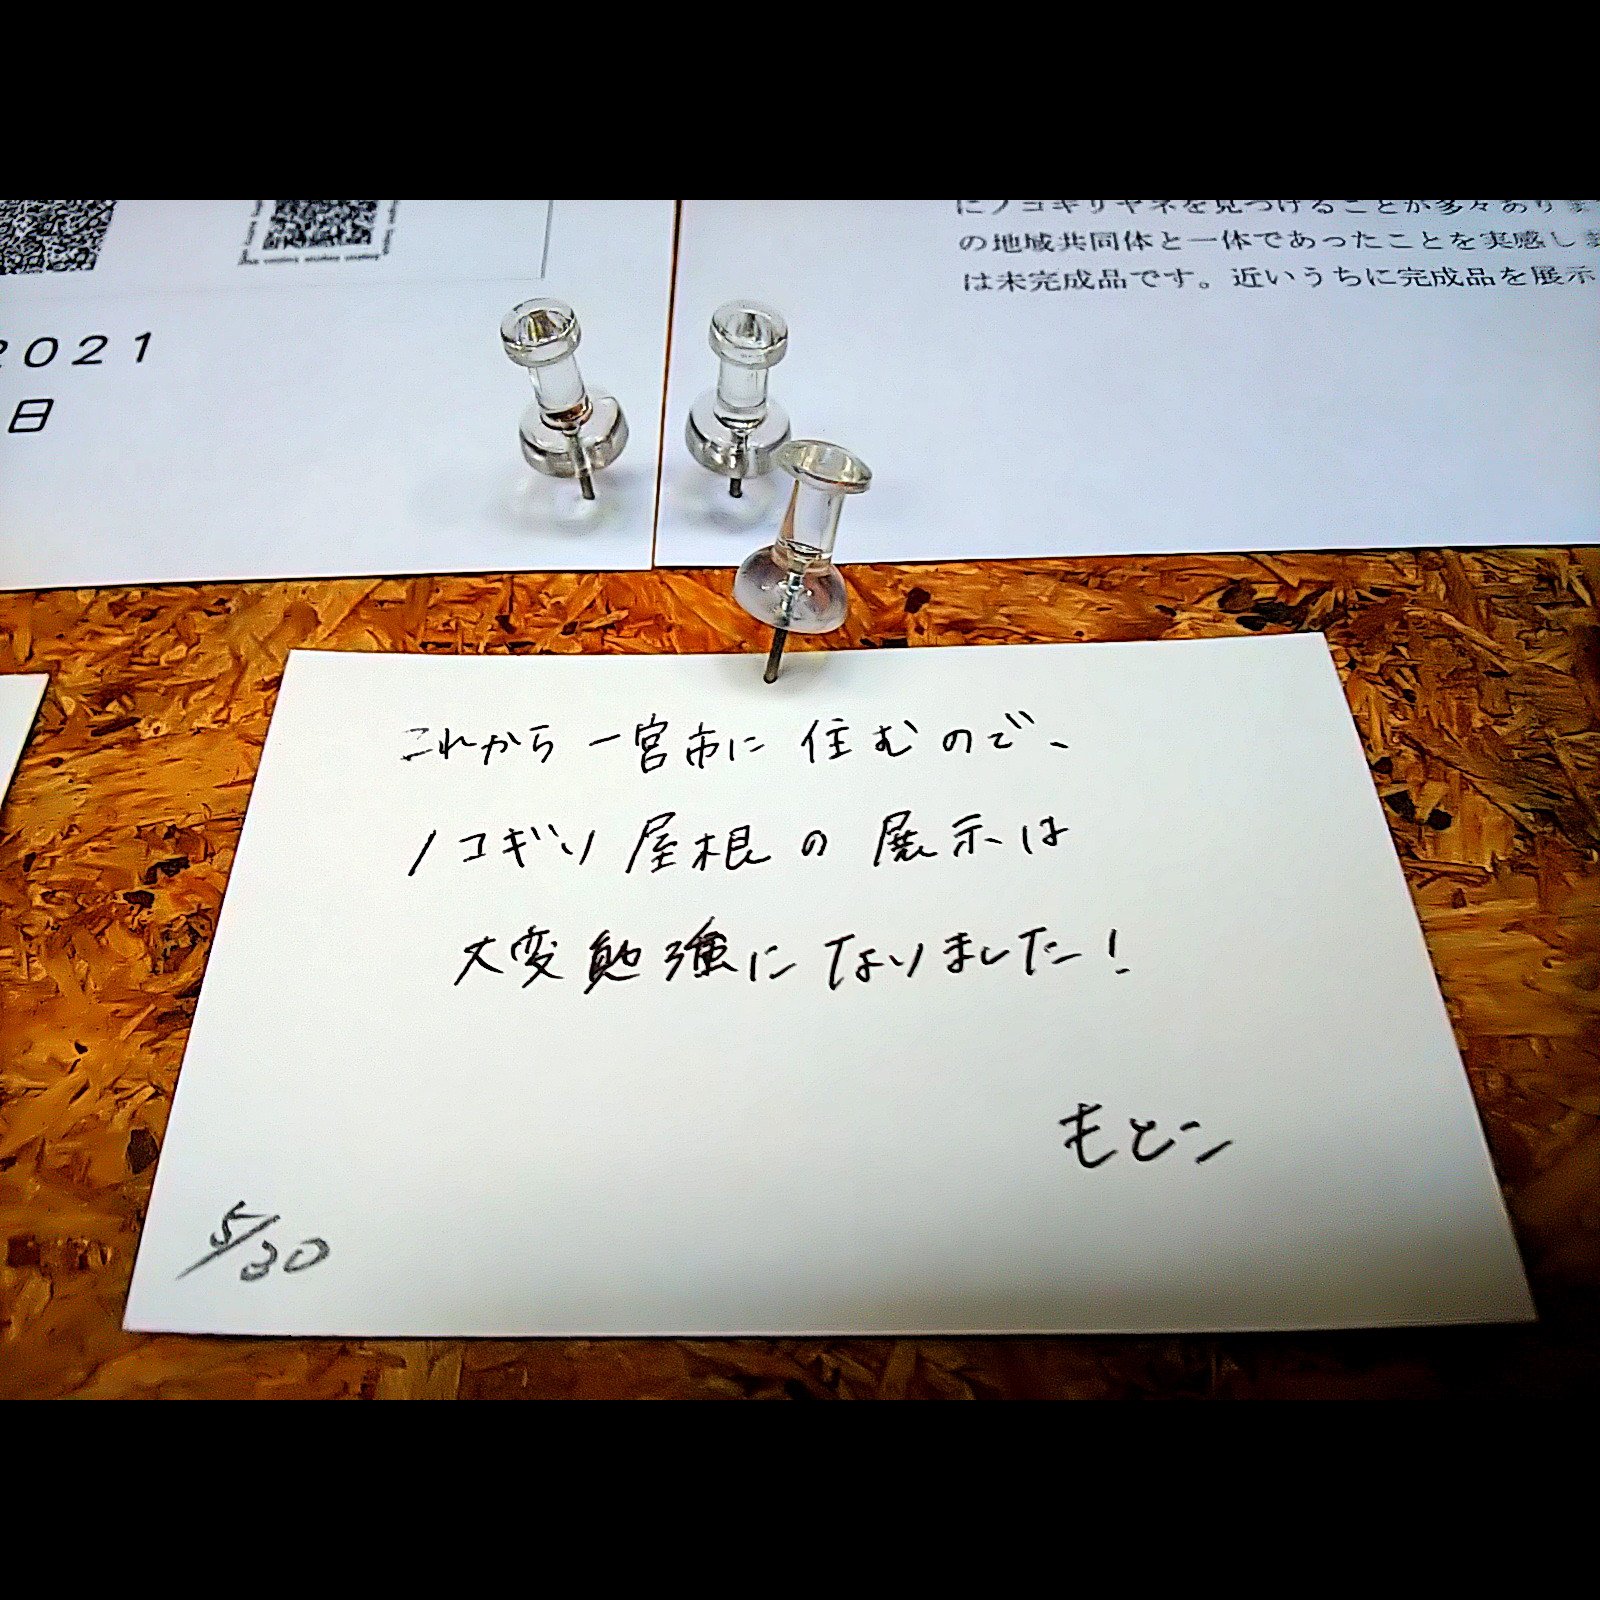 2021
日
にノコギリヤネを見つけることが多々ありま
の地域共同体と一体であったことを実感しま
は未完成品です。近いうちに完成品を展示
これから一宮市に住むので、
ノコギリ屋根の展示は
大変勉強になりました!
もとこ
5/30